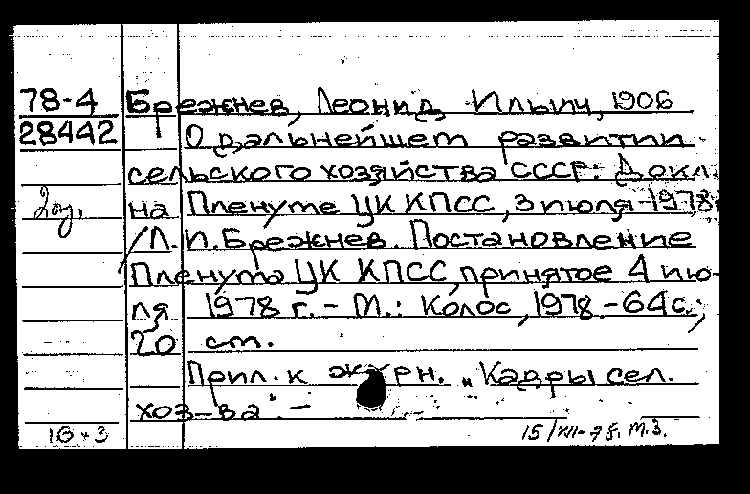 78-4 Брежнев, Леонид Ильич, 1906
28442 О дальнейшем развитии
сельского хозяйства СССР: Докл.
на Пленуме ЦК КПСС, 3 июля 1978
/Л.И.Брежнев. Постановление
Пленума ЦК КПСС, принятое 4 ию-
ля 1978 г. - М.: Колос, 1978.-64с.;
20 см.
Прил. к журн. „Кадры сел.
хоз-ва". -
10+3 15/VII-78. м.з.